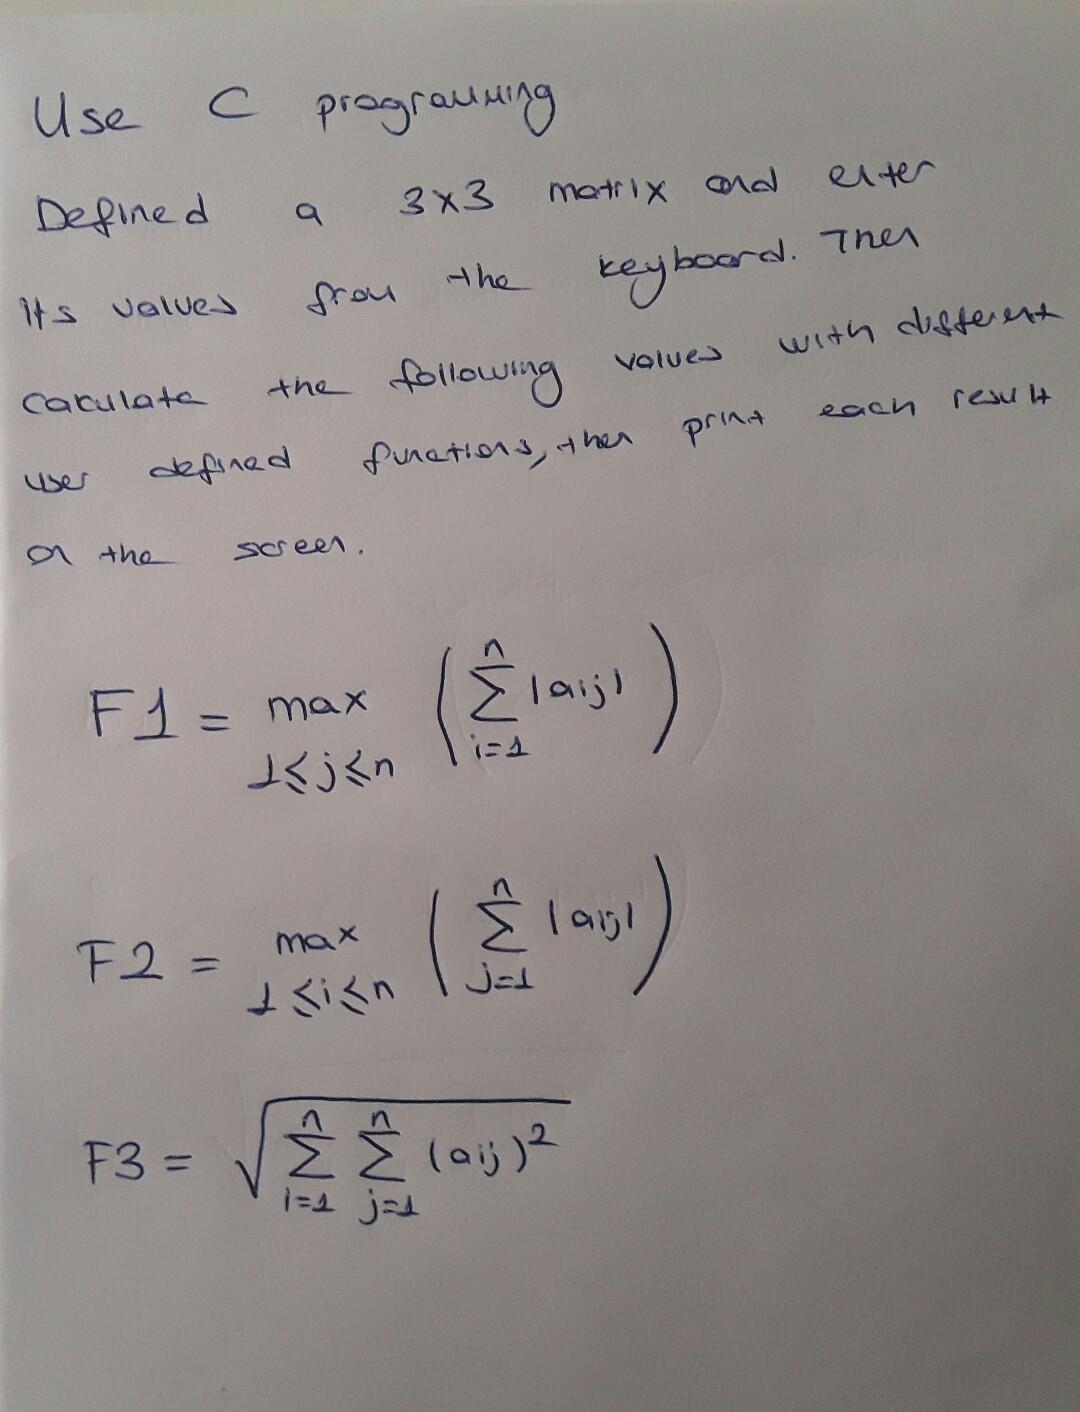 Use C programming
Defined a 3x3 matrix and enter
its values from the keyboard. Then
caculate the following values with different
user defined functions, then print each result
on the screen.
F1 = max 1≤j≤n ( n Σ i=1 |aij| )
F2 = max 1≤i≤n ( n Σ j=1 |aij| )
F3 = √ n Σ i=1 n Σ j=1 (aij)²